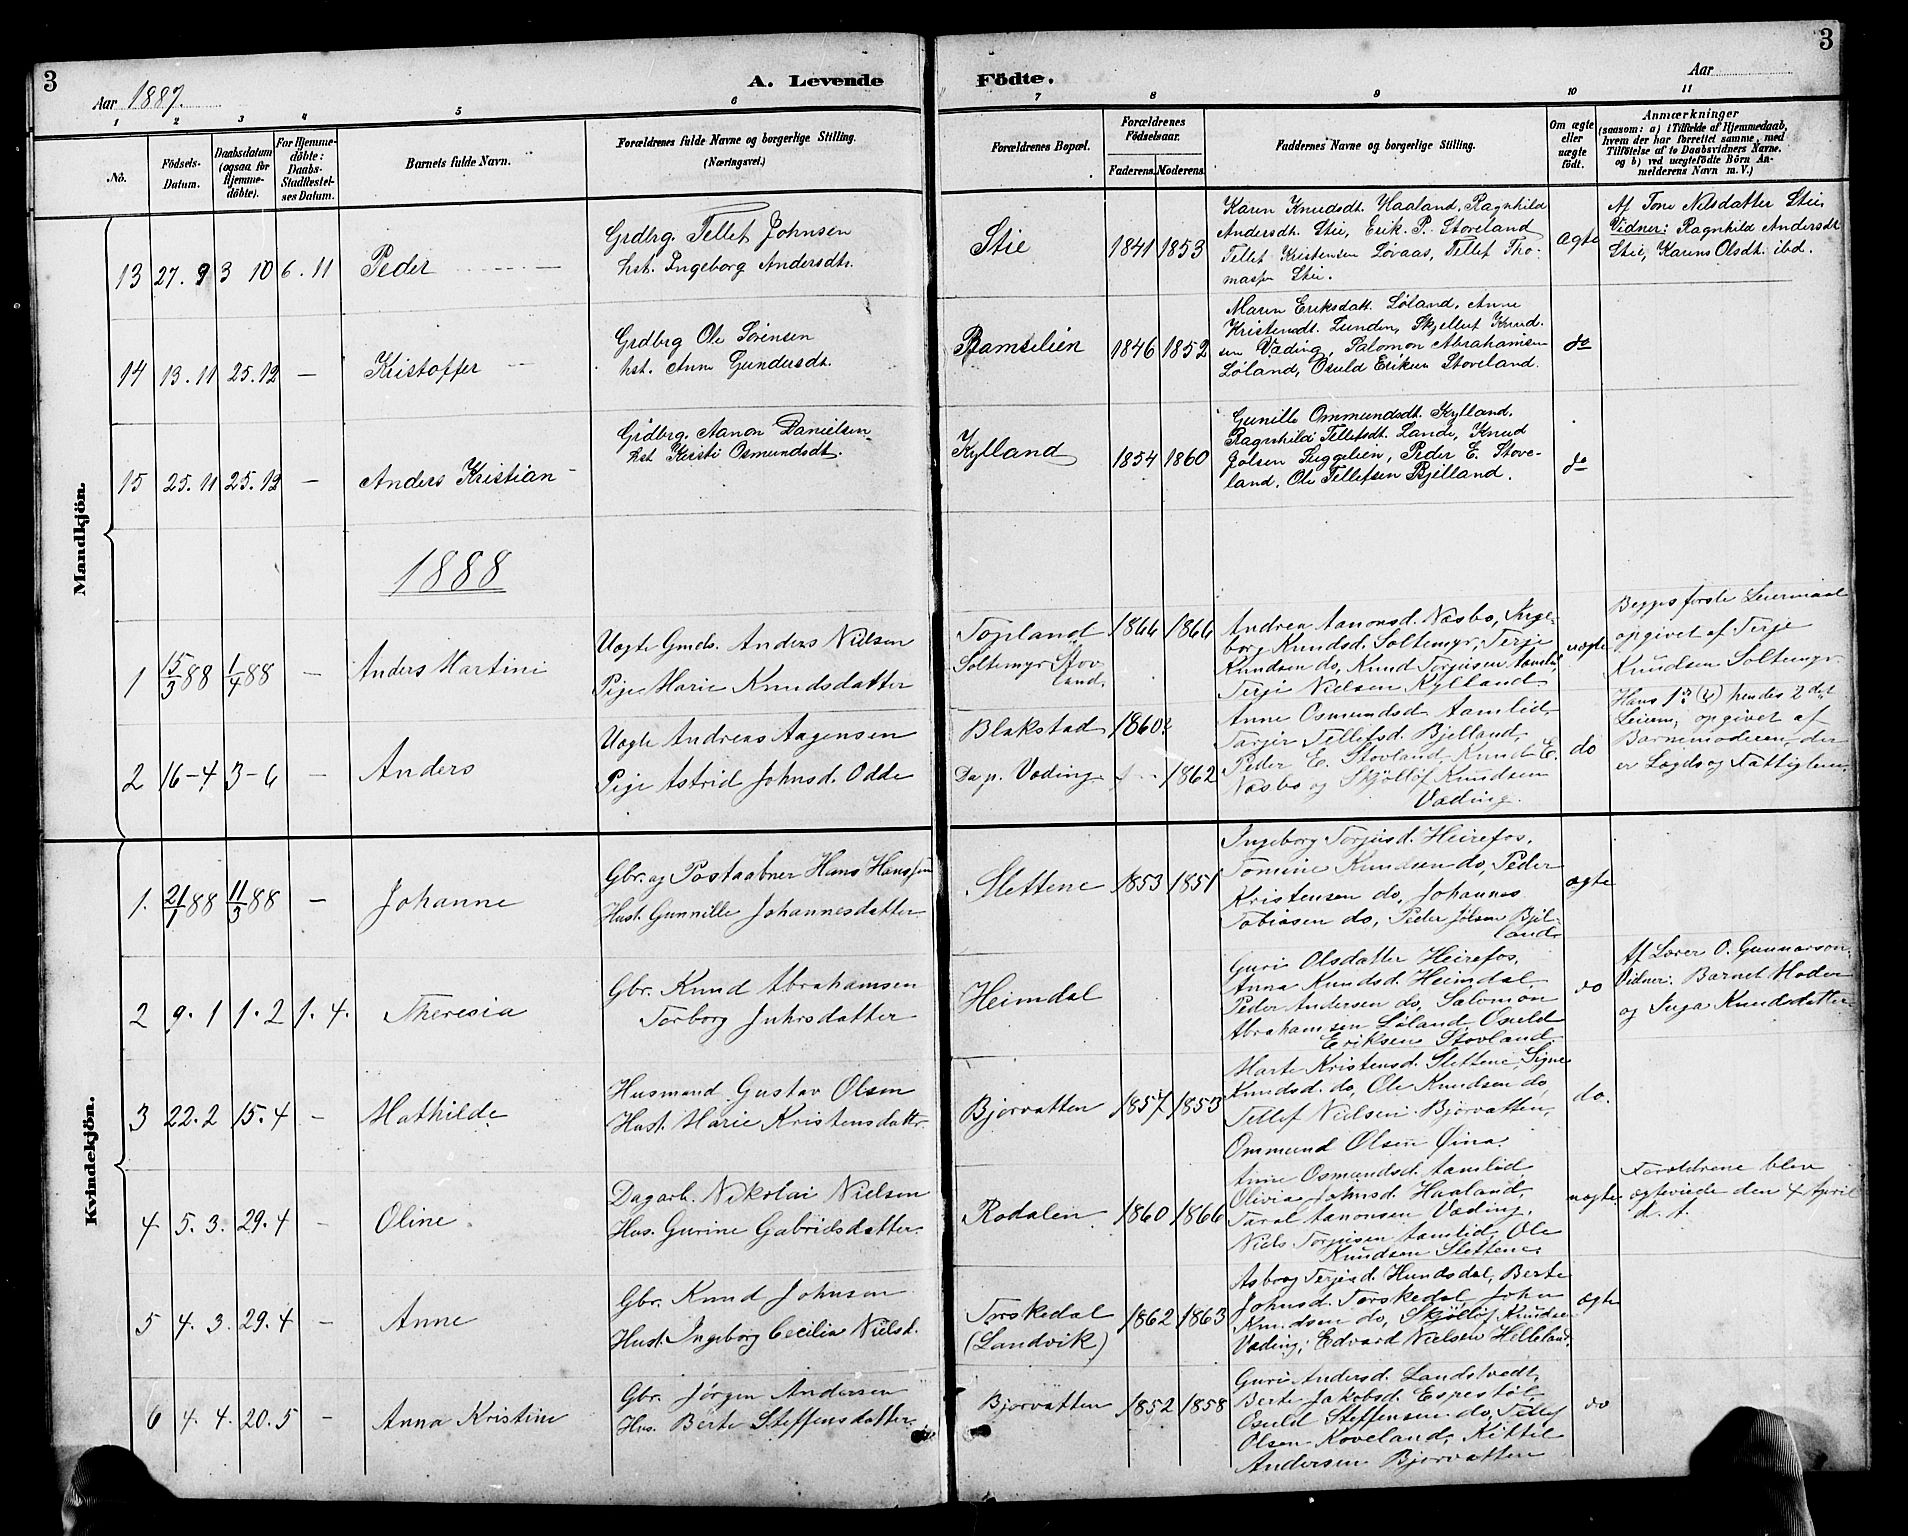 3
3
A. Levende Födte.
Aar 1887.
Aar
1 2 3 4 5 6 7 8 9 10 11
No.
Födsels-Datum.
Daabsdatum (ogsaa for Hjemme-döbte).
For Hjemme-döbte: Daabs-Stadfæstel-ses Datum.
Barnets fulde Navn.
Forældrenes fulde Navne og borgerlige Stilling.
(Næringsvei.)
Forældrenes Bopæl.
Forældrenes Födselsaar.
Faderens. Moderens.
Faddernes Navne og borgerlige Stilling.
Om ægte eller uægte födt.
Anmærkninger
(saasom: a) i Tilfælde af Hjemmedaab,
hvem der har forrettet samme, med
Tilföielse af to Daabsvidners Navne,
og b) ved uægtefödte Börn An-
melderens Navn m.V.)
Mandkjön.
13 27. 9 3 10 6. 11 Peder
Grdbrg. Tellef Johnsen
hst. Ingeborg Andersdt.
Stie 1841 1853
Karen Knudsdt. Haaland, Ragnhild
Andersdt. Stie, Erik P. Stoveland
Tellef Kristensen Løvaas, Tellef Tho-
massen Stie.
ægte
Af Tone Nilsdatter Stie,
Vidner: Ragnhild Andersdt
Stie, Karens Olsdt. ibd.
14 13. 11 25. 12 — Kristoffer
Grdbrg Ole Sørensen
hst. Anne Gundersdt.
Ramselien 1846 1852
Maren Eriksdatt. Løland, Anne
Kristensdt. Lunden, Skjellef Knud-
sen Væding, Salomon Abrahamsen
Løland, Osuld Eriksen Stoveland.
do
15 25. 11 25. 12 — Anders Kristian
Grdbrg. Aanon Danielsen
hst Kirsti Osmundsdt.
Kylland 1854 1860
Gunille Ommundsdt. Kylland.
Ragnhild Tellefsdt. Lande, Knud
Jølsen Suggelien, Peder E. Stove-
land. Ole Tellefsen Bjelland.
do
1888
1 15/3 88 1/4 88 — Anders Martin
Uægte Gmds. Anders Nielsen
Pige Marie Knudsdatter
Topland
Soltemyr Stov
land.
1866 1866
Andrea Aanonsd. Næsbø, Inge-
borg Knudsd. Soltemyr, Terje
Knudsen do, Knud Torjusen Aamlid
Terje Nielsen Kylland
uægte
Begges første Leiermaal
opgivet af Terje
Knudsen Soltemyr.
2 16-4 3-6 — Anders
Uægte Andreas Aagensen
Pige Astrid Johnsd. Odde
Blakstad
Da p. Væding
1860?
1862
Anne Osmundsd Aamlid,
Tarjer Tellefsd. Bjelland,
Peder E. Stovland Knud E.
Næsbø og Skjøllof Knudsen
Væding.
do
Hans 1ste (?) hendes 2det
Leierm, opgivet af
Barnemoderen, der
er Lægds og Fattiglem.
Kvindekjön.
1. 21/1 88 11/3 88 — Johanne
Gbr. og Postaabner Hans Hanssen
Hust. Gunnille Johannesdatter
Slettene 1853 1851
Ingeborg Torjusd. Heirefos,
Tomine Knudsen do, Peder
Kristensen do, Johannes
Tobiasen do, Peder Jølsen Bjel-
land
ægte
2 9. 1 1. 2 1. 4. Theresia
Gbr. Knud Abrahamsen
Torborg Juhrsdatter
Heimdal
Guri Olsdatter Heirefos,
Anna Knudsd. Heimdal,
Peder Andersen do, Salomon
Abrahamsen Løland, Osuld
Eriksen Stovland
do
Af Lærer O. Gunnarson
Vidner: Barnet Moder
og Inga Knudsdatter
3 22. 2 15. 4 — Mathilde
Husmand Gustav Olsen
Hust. Marie Kristensdatter
Bjorvatten 1857 1853
Marte Kristensd. Slettene, Signe
Knudsd. do, Ole Knudsen do,
Tellef Nielsen Bjorvatten,
Ommund Olsen Øina.
do.
4 5. 3. 29. 4 — Oline
Dagarb. Nikolai Nielsen
Hus. Gurine Gabrielsdatter
Rodalen 1860 1866
Anne Osmundsd. Aamlid
Olivia Johnsd. Haaland,
Taral Aanonsen Væding,
Niels Torjusen Aamlid, Ole
Knudsen Slettene.
uægte
Forældrene blev
ægteviede den 4 April
d. A.
5 4. 3. 29. 4 — Anne
Gbr. Knud Johnsen
Hust. Ingeborg Cecilia Nielsd.
Torskedal
(Landvik)
1862 1863
Asborg Terjesd. Hundsdal, Berte
Johnsd. Torskedal, John
Knudsen do, Skjøllof Knudsen
Væding, Edvard Nielsen Hilleland.
ægte
6 4. 4. 20. 5 — Anna Kristine
Gbr. Jörgen Andersen
Hus. Berte Steffensdatter
Bjorvatten 1852 1858
Guri Andersd. Landstvedt,
Berte Jakobsd. Espestöl,
Osuld Steffensen do, Tellef
Olsen Koveland, Kittil
Andersen Bjorvatten
do